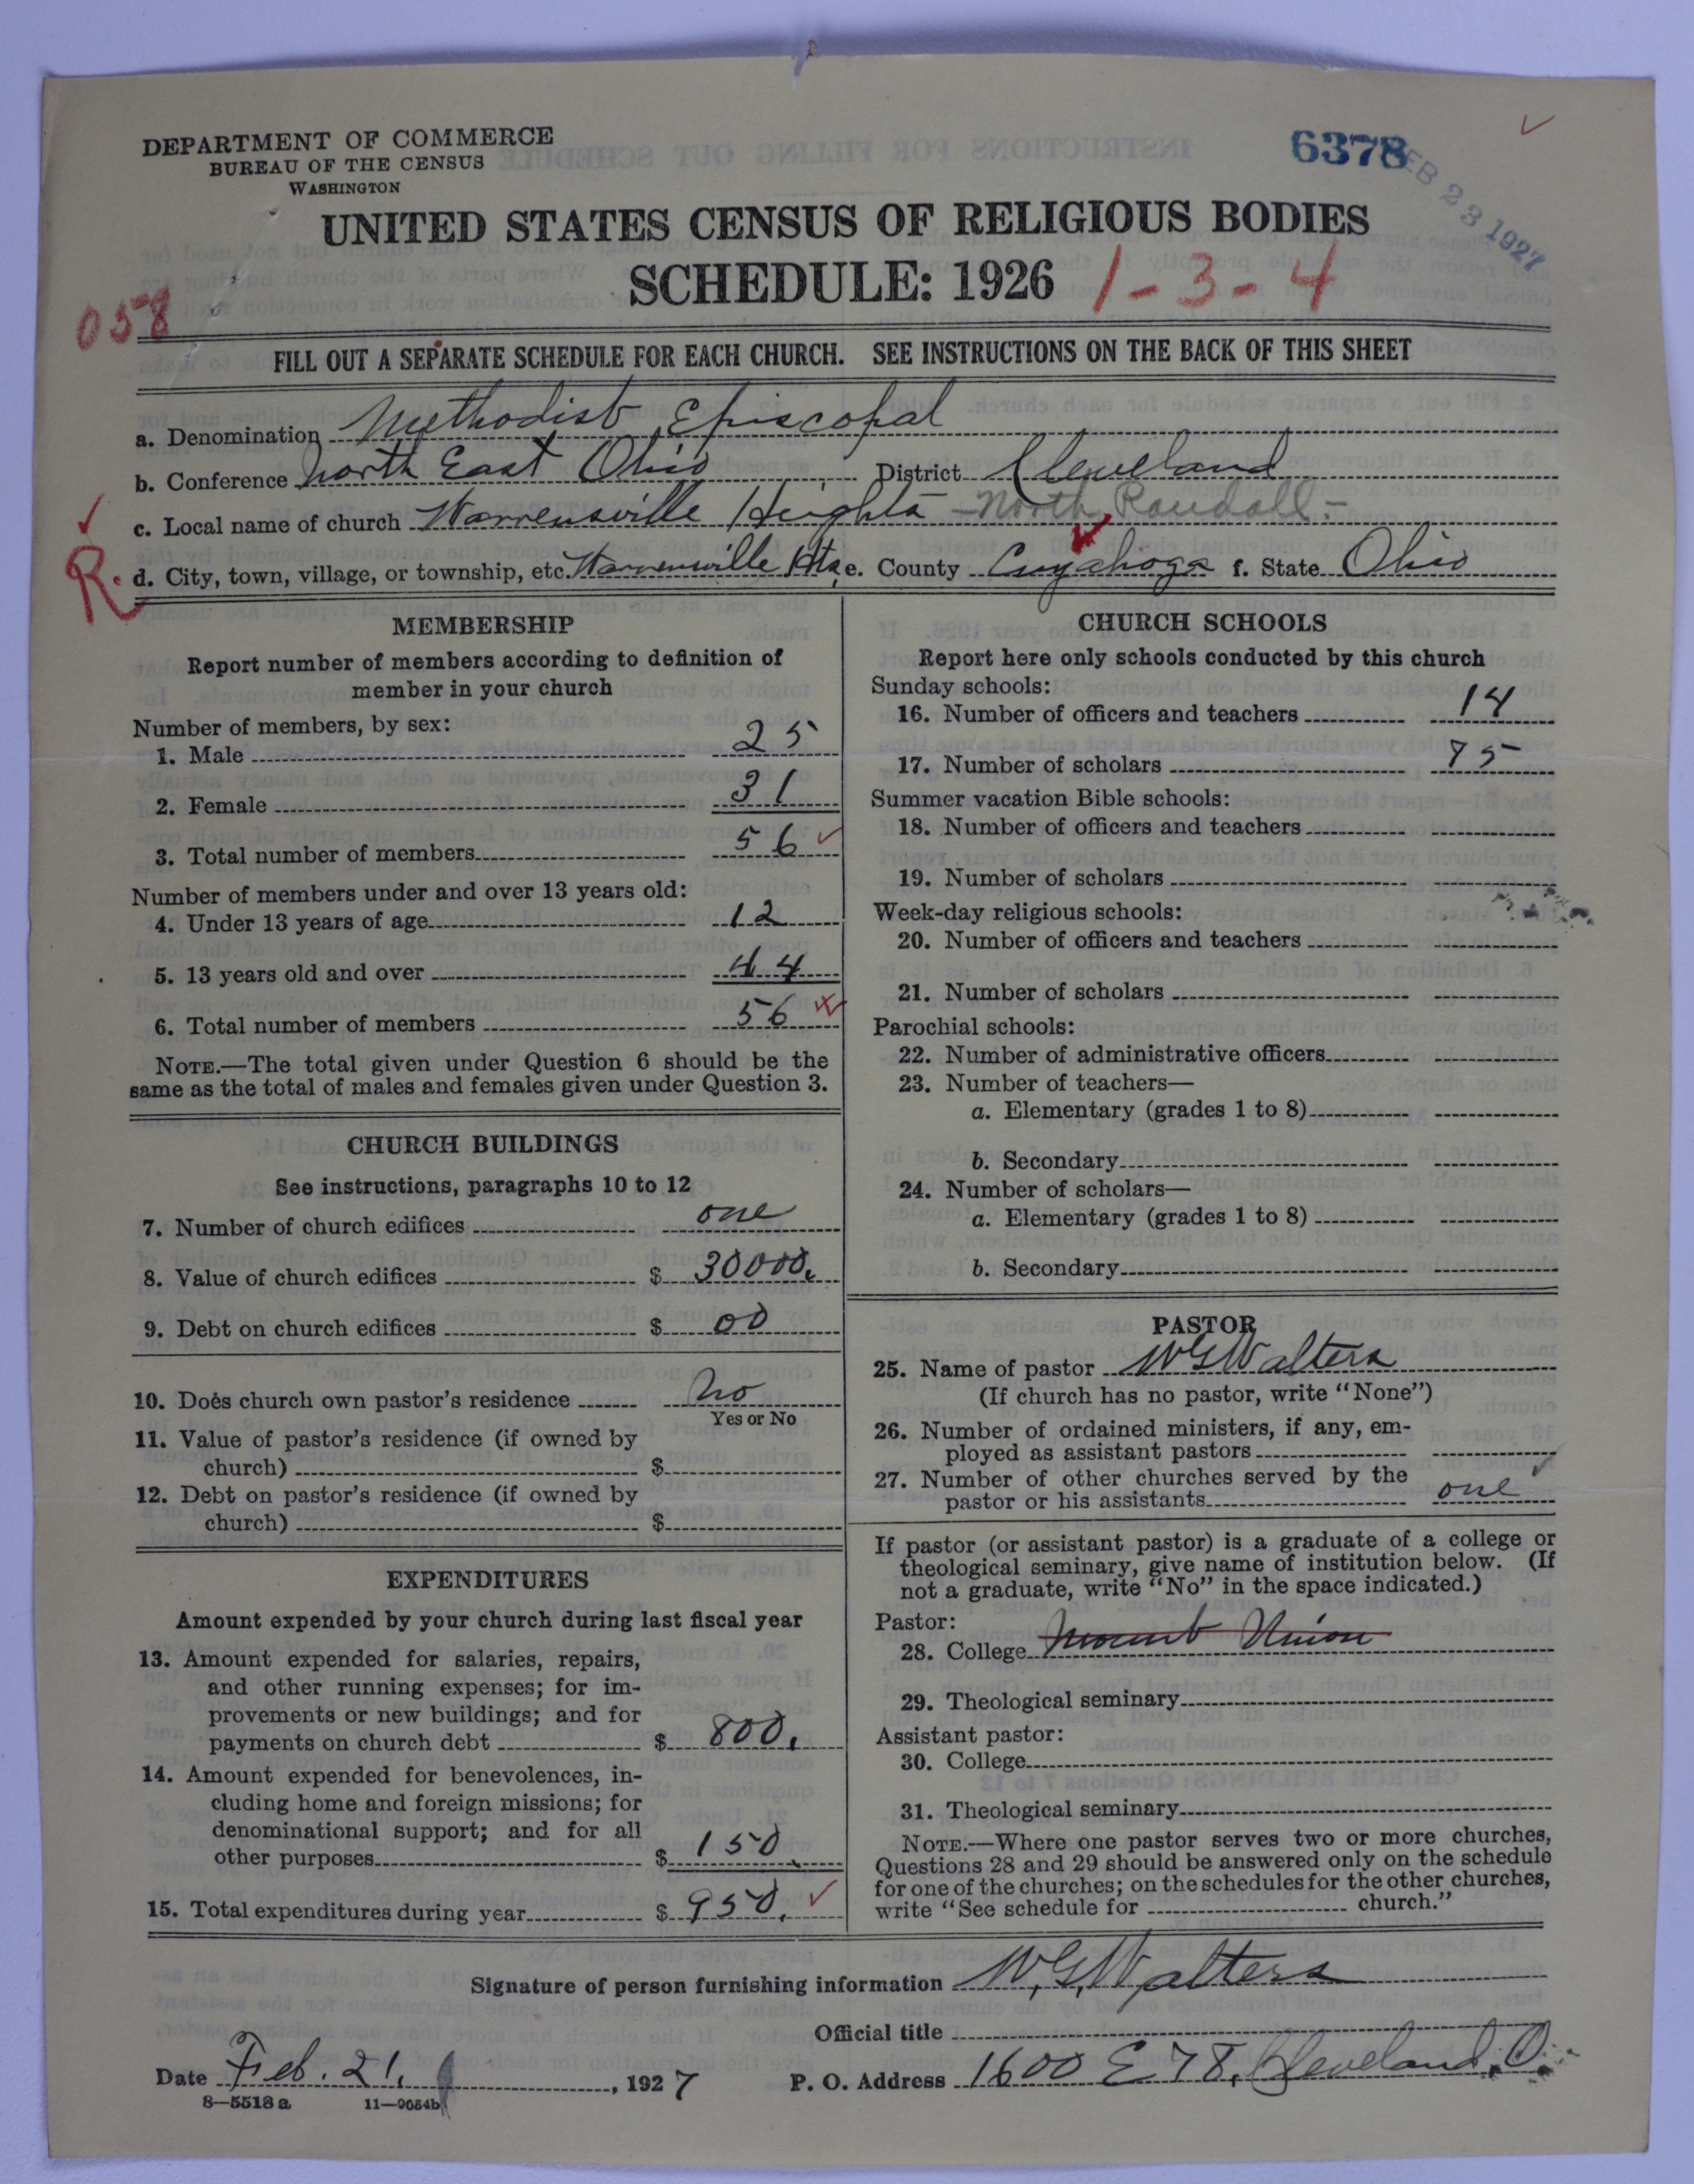 DEPARTMENT OF COMMERCE
BUREAU OF THE CENSUS
WASHINGTON
6378
FEB 23 1927
UNITED STATES CENSUS OF RELIGIOUS BODIES
SCHEDULE: 1926 1-3-4
058
FILL OUT A SEPARATE SCHEDULE FOR EACH CHURCH. SEE INSTRUCTIONS ON THE BACK OF THIS SHEET
a. Denomination Methodist Episcopal
b. Conference North East Ohio District Cleveland
c. Local name of church Warrensville Heights - North Randall -
R. d. City, town, village, or township, etc. Warrensville Hts e. County Cuyahoga f. State Ohio
MEMBERSHIP
Report number of members according to definition of
member in your church
Number of members, by sex:
1. Male 25
2. Female 31
3. Total number of members 56
Number of members under and over 13 years old:
4. Under 13 years of age 12
5. 13 years old and over 44
6. Total number of members 56
NOTE.—The total given under Question 6 should be the
same as the total of males and females given under Question 3.
CHURCH BUILDINGS
See instructions, paragraphs 10 to 12
7. Number of church edifices one
8. Value of church edifices $ 30000.
9. Debt on church edifices $ 00
10. Does church own pastor's residence No
Yes or No
11. Value of pastor's residence (if owned by
church) $
12. Debt on pastor's residence (if owned by
church) $
EXPENDITURES
Amount expended by your church during last fiscal year
13. Amount expended for salaries, repairs,
and other running expenses; for im-
provements or new buildings; and for
payments on church debt $ 800.
14. Amount expended for benevolences, in-
cluding home and foreign missions; for
denominational support; and for all
other purposes $ 150.
15. Total expenditures during year $ 950.
CHURCH SCHOOLS
Report here only schools conducted by this church
Sunday schools:
16. Number of officers and teachers 14
17. Number of scholars 75
Summer vacation Bible schools:
18. Number of officers and teachers
19. Number of scholars
Week-day religious schools:
20. Number of officers and teachers
21. Number of scholars
Parochial schools:
22. Number of administrative officers
23. Number of teachers—
a. Elementary (grades 1 to 8)
b. Secondary
24. Number of scholars—
a. Elementary (grades 1 to 8)
b. Secondary
PASTOR
25. Name of pastor W G Walters
(If church has no pastor, write "None")
26. Number of ordained ministers, if any, em-
ployed as assistant pastors
27. Number of other churches served by the
pastor or his assistants one
If pastor (or assistant pastor) is a graduate of a college or
theological seminary, give name of institution below. (If
not a graduate, write "No" in the space indicated.)
Pastor:
28. College Mount Union
29. Theological seminary
Assistant pastor:
30. College
31. Theological seminary
NOTE.—Where one pastor serves two or more churches,
Questions 28 and 29 should be answered only on the schedule
for one of the churches; on the schedules for the other churches,
write "See schedule for church."
Signature of person furnishing information W. G. Walters
Official title
Date Feb. 21, 1927 P. O. Address 1600 E 78, Cleveland, O.
8—5518 a 11—9054b